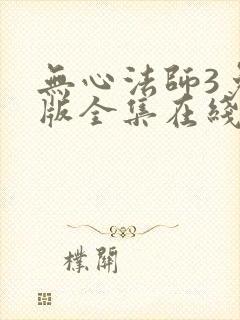 無心法師3
版全集在綫
樸開